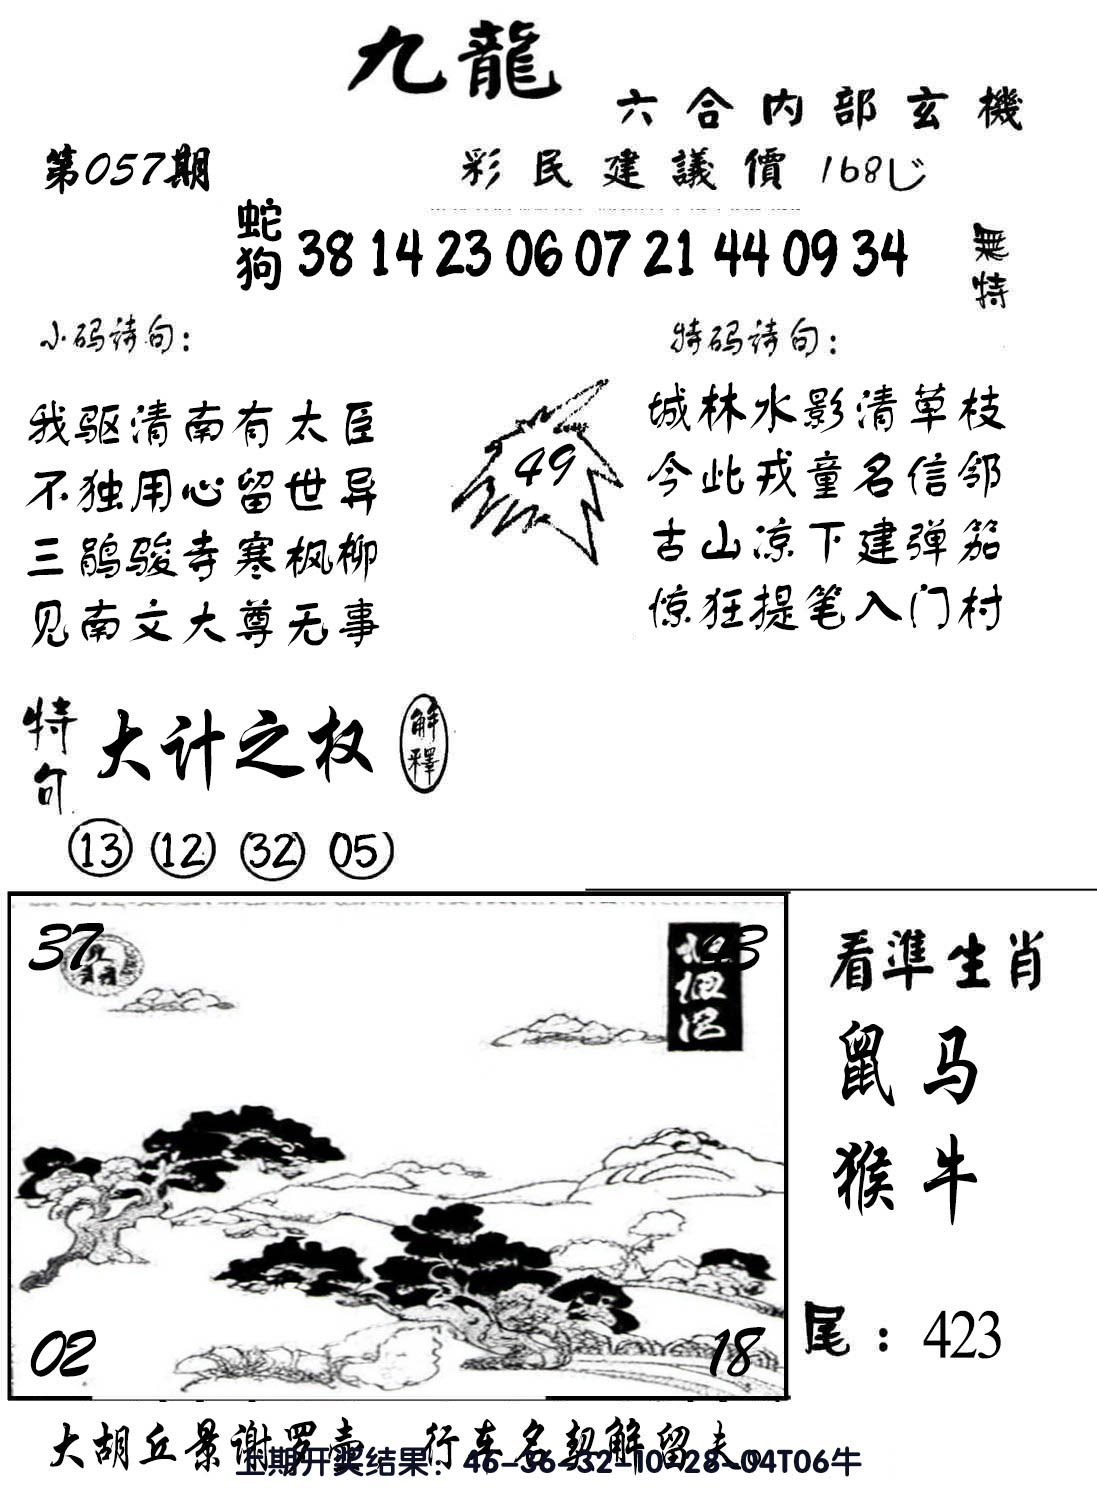 九龍
六合内部玄機
第057期
彩民建議價 168
蛇狗 38 14 23 06 07 21 44 09 34
無特
小码诗句:
特码诗句:
我驱清南有太臣
不独用心留世异
三鹃骏寺寒枫柳
见南文大尊无事
49
城林水影清草枝
今此戎童名信邻
古山凉下建弹笳
惊狂提笔入门村
特句 大计之权 解釋
13 12 32 05
37
43
02
18
看準生肖
鼠 马
猴 牛
尾：423
大胡丘景谢罗壶 行车名契解留夫
上期开奖结果：46-36-32-10-28-04T06牛